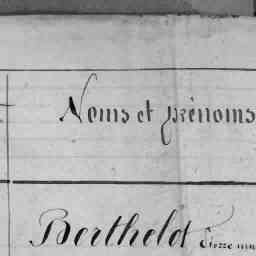 Noms et prénoms
Berthelot